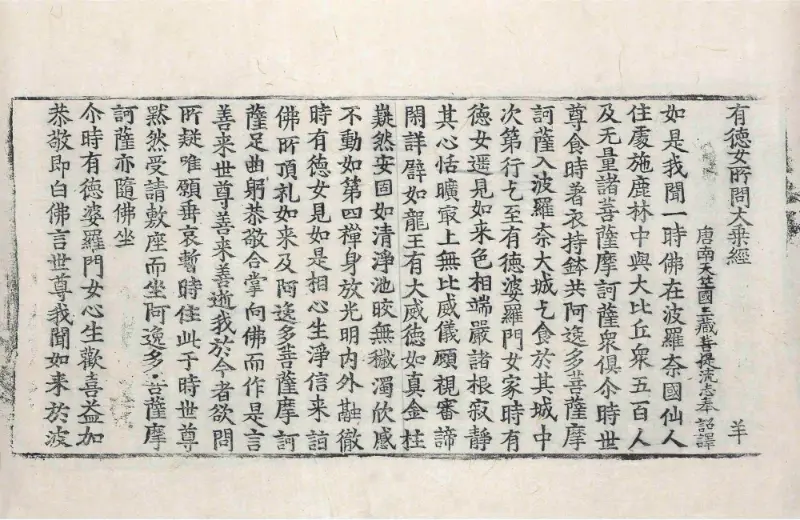 有德女所問大乘經 羊
唐南天竺國三藏菩提流志奉 詔譯
如是我聞一時佛在波羅奈國仙人
住處施鹿林中與大比丘衆五百人
及无量諸菩薩摩訶薩衆俱尒時世
尊食時著衣持鉢共阿逸多菩薩摩
訶薩入波羅奈大城乞食於其城中
次第行乞至有德婆羅門女家時有
德女遥見如来色相端嚴諸根寂静
其心恬曠最上無比威儀顧視審諦
閑詳譬如龍王有大威德如真金柱
嶷然安固如清淨池皎無穢濁欣感
不動如第四禪身放光明内外融徹
時有德女見如是相心生淨信来詣
佛所頂礼如来及阿逸多菩薩摩訶
薩足曲躬恭敬合掌向佛而作是言
善来世尊善来善逝我於今者欲問
所疑唯願垂哀暫時住此于時世尊
默然受請敷座而坐阿逸多菩薩摩
訶薩亦隨佛坐
尒時有德婆羅門女心生歡喜益加
恭敬即白佛言世尊我聞如来於波